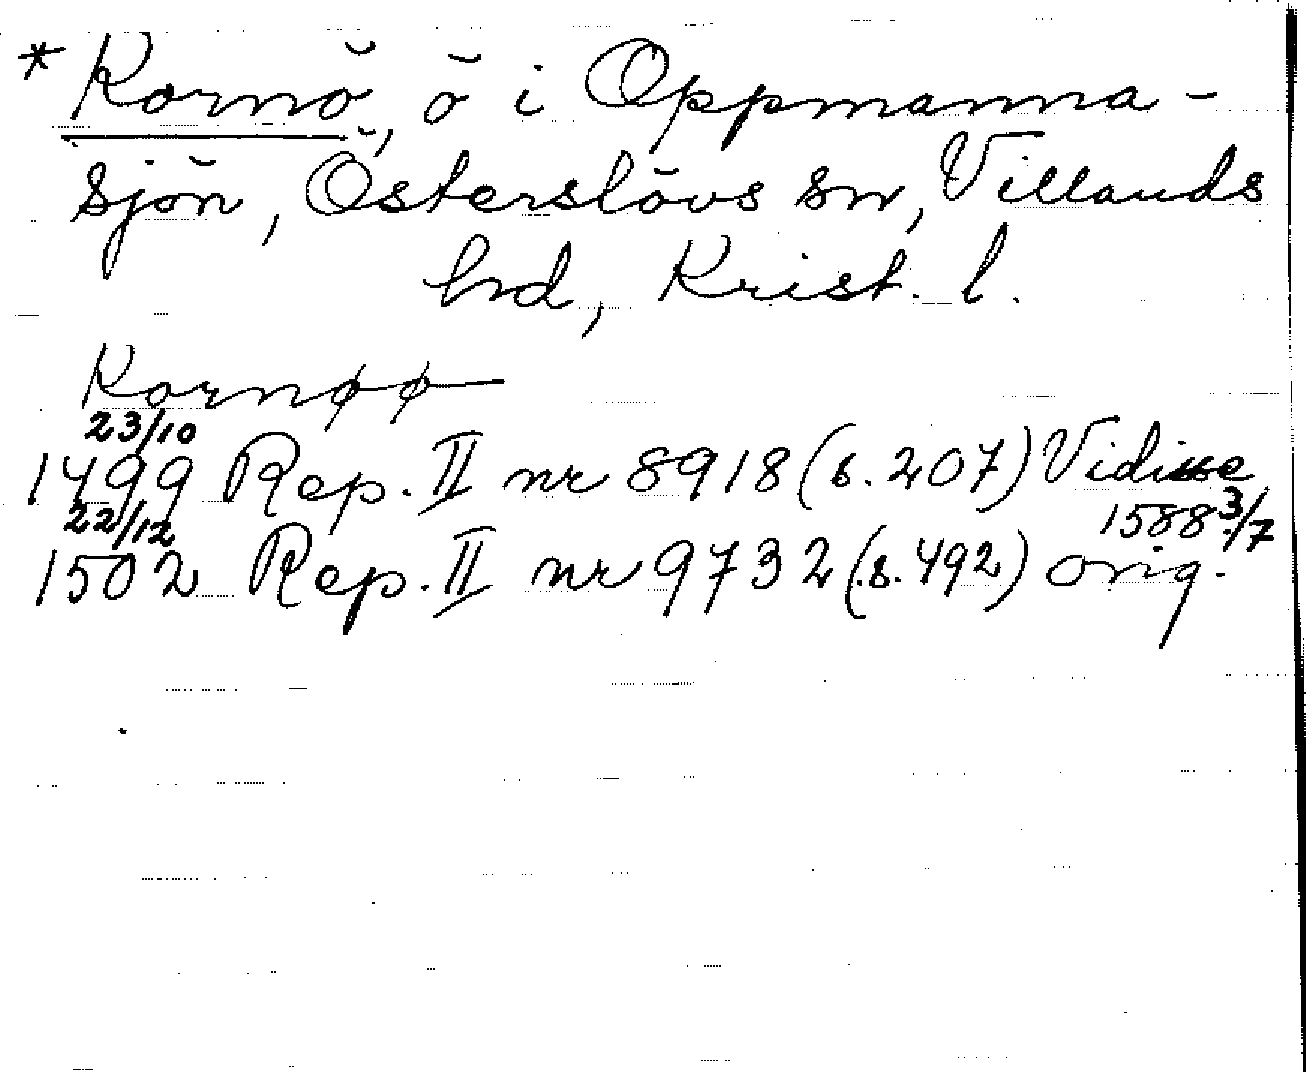 * Kornö, ö i Oppmanna-
sjön, Österslövs sn, Villands
hd, Krist. l.
Kornøø
23/10
1499 Rep. II nr 8918 (s. 207) Vidisse
22/12 1588 3/7
1502 Rep. II nr 9732 (s. 492) orig.